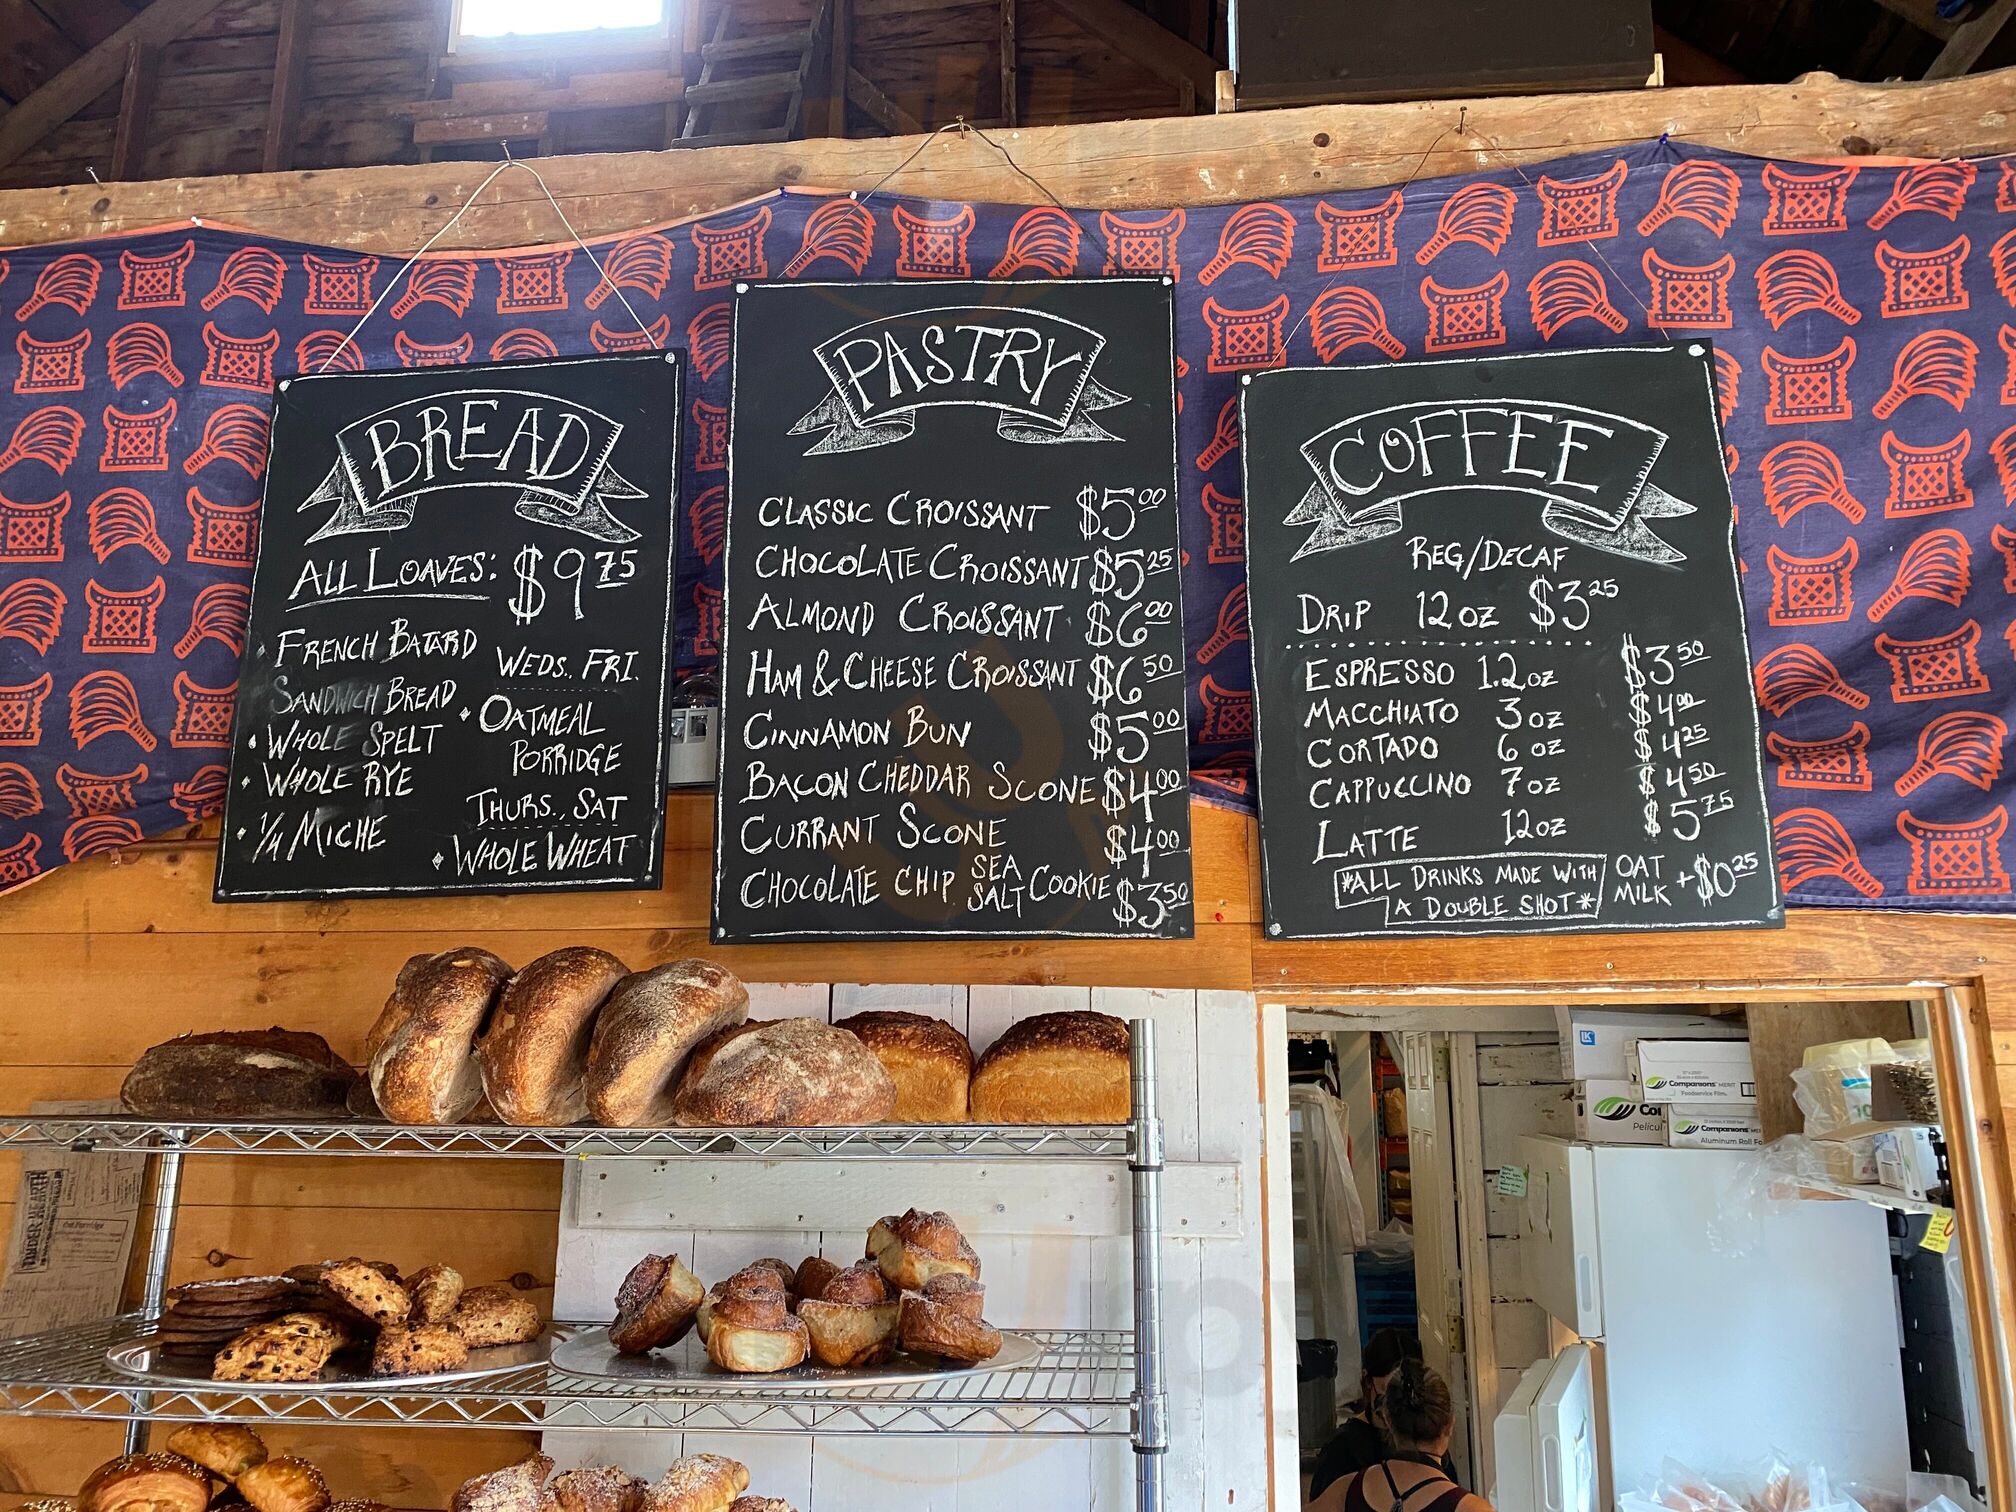 BREAD
ALL LOAVES: $9.75
FRENCH BATARD
SANDWICH BREAD
• WHOLE SPELT
• WHOLE RYE
• 1/4 MICHE
WEDS., FRI.
• OATMEAL
PORRIDGE
THURS., SAT
• WHOLE WHEAT
PASTRY
CLASSIC CROISSANT $5.00
CHOCOLATE CROISSANT $5.25
ALMOND CROISSANT $6.00
HAM & CHEESE CROISSANT $6.50
CINNAMON BUN $5.00
BACON CHEDDAR SCONE $4.00
CURRANT SCONE $4.00
CHOCOLATE CHIP SEA SALT COOKIE $3.50
COFFEE
REG/DECAF
DRIP 12 OZ $3.25
ESPRESSO 1.2 OZ $3.50
MACCHIATO 3 OZ $4.00
CORTADO 6 OZ $4.25
CAPPUCCINO 7 OZ $4.50
LATTE 12 OZ $5.75
*ALL DRINKS MADE WITH
A DOUBLE SHOT*
OAT
MILK +$0.25
Companions
Foodservice Film
Companions
Aluminum Roll